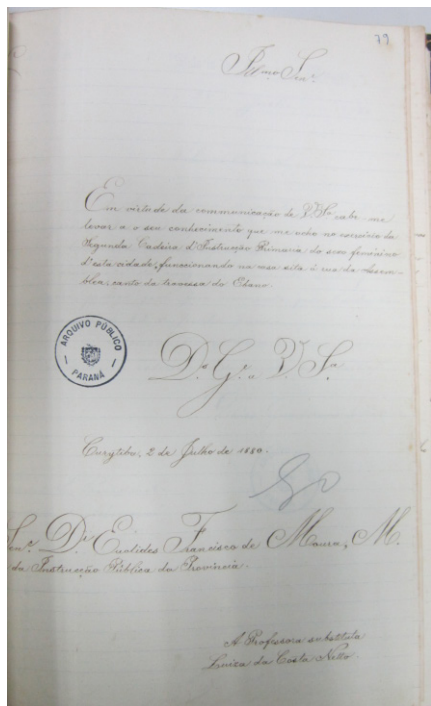 79
Illmo Snr.
Em virtude da communicação de V.Sa cabe-me
levar a o seu conhecimento que me acho no exercicio da
Segunda Cadeira d'Instrucção Primaria do sexo feminino
d'esta cidade, funccionando na casa sita á rua da Assem-
blea, canto da travessa do
ARQUIVO PÚBLICO
PARANÁ
Ds. Ge. a V. Sa.
Curytiba, 2 de Julho de 1880.
Snr. Dr. Euclides Francisco de Moura, M.
da Instrucção Publica da Provincia.
A Professora substituta
Luiza da Costa Netto.